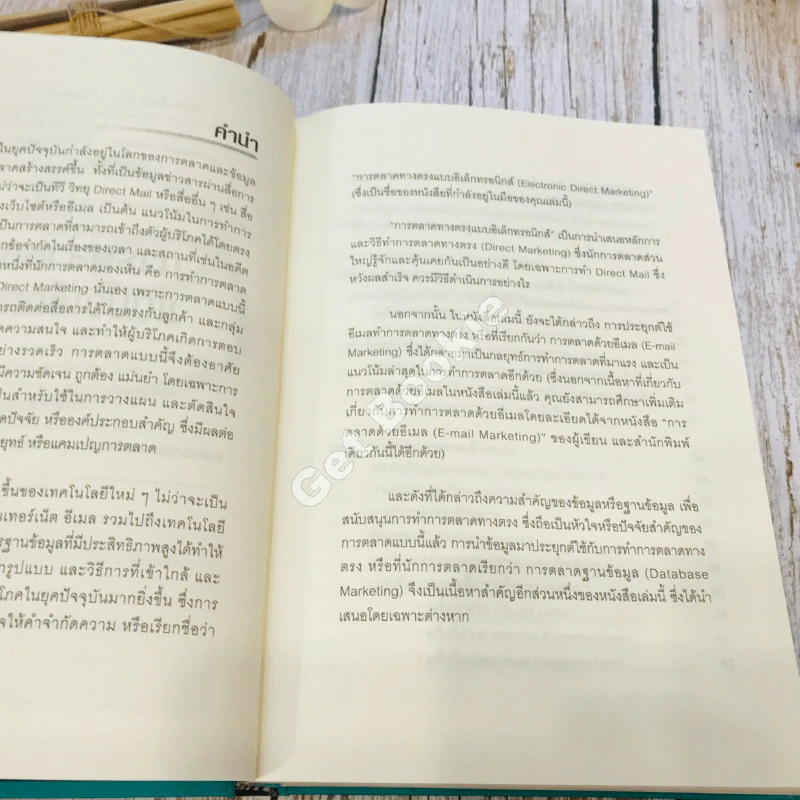 คำนำ
ในยุคปัจจุบันกำลังอยู่ในโลกของการตลาดและข้อมูล
ลาดสร้างสรรค์ขึ้น ทั้งที่เป็นข้อมูลข่าวสารผ่านสื่อการ
ไม่ว่าจะเป็นทีวี วิทยุ Direct Mail หรือสื่ออื่น ๆ เช่น สื่อ
งเว็บไซต์หรืออีเมล เป็นต้น แนวโน้มในการทำการ
เป็นการตลาดที่สามารถเข้าถึงตัวผู้บริโภคได้โดยตรง
กข้อจำกัดในเรื่องของเวลา และสถานที่เช่นในอดีต
หนึ่งที่นักการตลาดมองเห็น คือ การทำการตลาด
Direct Marketing นั่นเอง เพราะการตลาดแบบนี้
ารถติดต่อสื่อสารได้โดยตรงกับลูกค้า และกลุ่ม
ดความสนใจ และทำให้ผู้บริโภคเกิดการตอบ
ย่างรวดเร็ว การตลาดแบบนี้จึงต้องอาศัย
มีความชัดเจน ถูกต้อง แม่นยำ โดยเฉพาะการ
ป็นสำหรับใช้ในการวางแผน และตัดสินใจ
ดปัจจัย หรือองค์ประกอบสำคัญ ซึ่งมีผลต่อ
ยุทธ์ หรือแคมเปญการตลาด
ขึ้นของเทคโนโลยีใหม่ ๆ ไม่ว่าจะเป็น
นเทอร์เน็ต อีเมล รวมไปถึงเทคโนโลยี
ฐานข้อมูลที่มีประสิทธิภาพสูงได้ทำให้
ารูปแบบ และวิธีการที่เข้าใกล้ และ
โภคในยุคปัจจุบันมากยิ่งขึ้น ซึ่งการ
จให้คำจำกัดความ หรือเรียกชื่อว่า
"การตลาดทางตรงแบบอิเล็กทรอนิกส์ (Electronic Direct Marketing)"
(ซึ่งเป็นชื่อของหนังสือที่กำลังอยู่ในมือของคุณเล่มนี้)
"การตลาดทางตรงแบบอิเล็กทรอนิกส์" เป็นการนำเสนอหลักการ
และวิธีทำการตลาดทางตรง (Direct Marketing) ซึ่งนักการตลาดส่วน
ใหญ่รู้จักและคุ้นเคยกันเป็นอย่างดี โดยเฉพาะการทำ Direct Mail ซึ่ง
หวังผลสำเร็จ ควรมีวิธีดำเนินการอย่างไร
นอกจากนั้น ในหนังสือเล่มนี้ ยังจะได้กล่าวถึง การประยุกต์ใช้
อีเมลทำการตลาดทางตรง หรือที่เรียกกันว่า การตลาดด้วยอีเมล (E-mail
Marketing) ซึ่งได้กลายมาเป็นกลยุทธ์การทำการตลาดที่มาแรง และเป็น
แนวโน้มล่าสุดในการทำการตลาดอีกด้วย (ซึ่งนอกจากเนื้อหาที่เกี่ยวกับ
การตลาดด้วยอีเมลในหนังสือเล่มนี้แล้ว คุณยังสามารถศึกษาเพิ่มเติม
เกี่ยวกับการทำการตลาดด้วยอีเมลโดยละเอียดได้จากหนังสือ "การ
ตลาดด้วยอีเมล (E-mail Marketing)" ของผู้เขียน และสำนักพิมพ์
เดียวกันนี้ได้อีกด้วย)
และดังที่ได้กล่าวถึงความสำคัญของข้อมูลหรือฐานข้อมูล เพื่อ
สนับสนุนการทำการตลาดทางตรง ซึ่งถือเป็นหัวใจหรือปัจจัยสำคัญของ
การตลาดแบบนี้แล้ว การนำข้อมูลมาประยุกต์ใช้กับการทำการตลาดทาง
ตรง หรือที่นักการตลาดเรียกว่า การตลาดฐานข้อมูล (Database
Marketing) จึงเป็นเนื้อหาสำคัญอีกส่วนหนึ่งของหนังสือเล่มนี้ ซึ่งได้นำ
เสนอโดยเฉพาะต่างหาก
Get Bookie